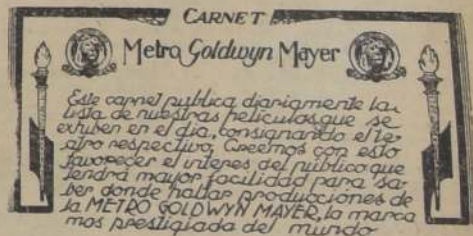 CARNET
Metro Goldwyn Mayer
Este carnet publica diariamente la
lista de nuestras películas que se
exhiben en el dia, consignando el te-
atro respectivo. Creemos con esto
favorecer el interes del publico que
tendrá mayor facilidad para sa-
ber donde hallar producciones de
la METRO GOLDWYN MAYER, la marca
mas prestigiada del mundo